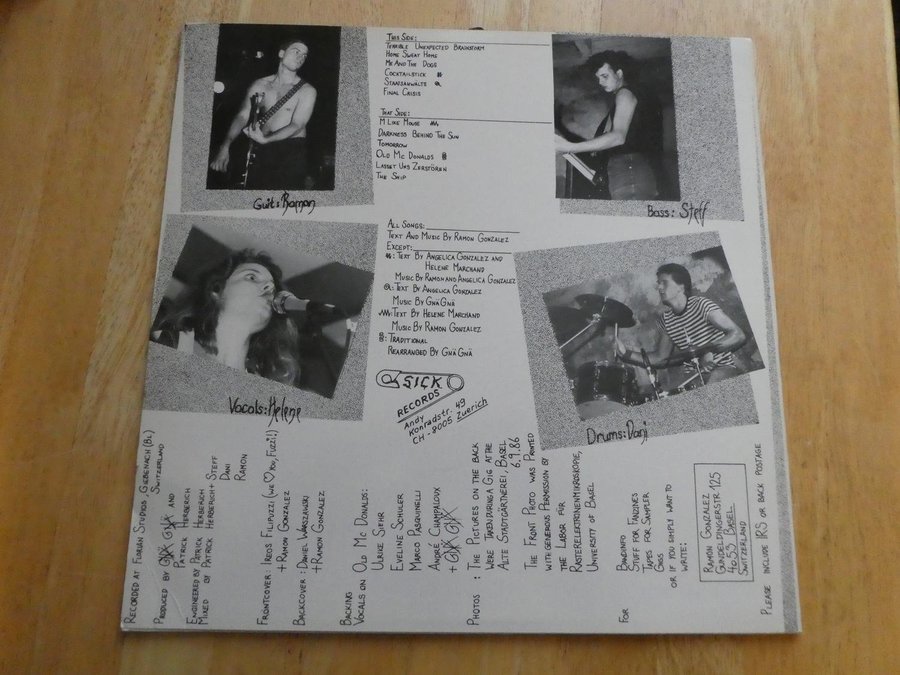 This Side:
Terrible Unexpected Brainstorm
Home Sweat Home
Me And The Dogs
Cocktailstick
Staatsanwälte
Final Crisis
That Side:
M Like Mouse
Darkness Behind The Sun
Tomorrow
Old Mc Donalds
Lasset Uns Zerstören
The Ship
Guit: Ramon
Bass: Steff
All Songs:
Text And Music By Ramon Gonzalez
Except:
: Text By Angelica Gonzalez and
Helene Marchand
Music By Ramon and Angelica Gonzalez
: Text By Angelica Gonzalez
Music By Gnä Gnä
: Text By Helene Marchand
Music By Ramon Gonzalez
: Traditional
Rearranged By Gnä Gnä
Vocals: Helene
Drums: Dani
SICK
RECORDS
Andy
Konradstr. 49
CH-8005 Zuerich
Recorded at Florian Studios, Giebenach (BL)
Switzerland
Produced by Gnä Gnä and
Patrick Herberich
Engineered by Patrick Herberich
Mixed by Patrick Herberich + Steff
Dani
Ramon
Frontcover: Iareos Filipuzzi (we ♡ you, Fuzzi!!)
+ Ramon Gonzalez
Backcover: Daniel Warszawski
+ Ramon Gonzalez
Backing
Vocals on Old Mc Donalds:
Ulrike Siehr
Eveline Schuler
Marco Pasquinelli
André Champaloux
+ Gnä Gnä
Photos: The Pictures on the back
were taken during a gig at the
Alte Stadtgärtnerei, Basel
6.9.86
The Front Photo was printed
with generous permission by
the Labor für
Rasterelektronenmikroskopie,
University of Basel
For Bandinfo
Stuff for Fanzines
Tapes for Sampler
Gigs
or if you simply want to
write:
Ramon Gonzalez
Gundeldingerstr 125
4053 Basel
Switzerland
Please include IRS or back postage